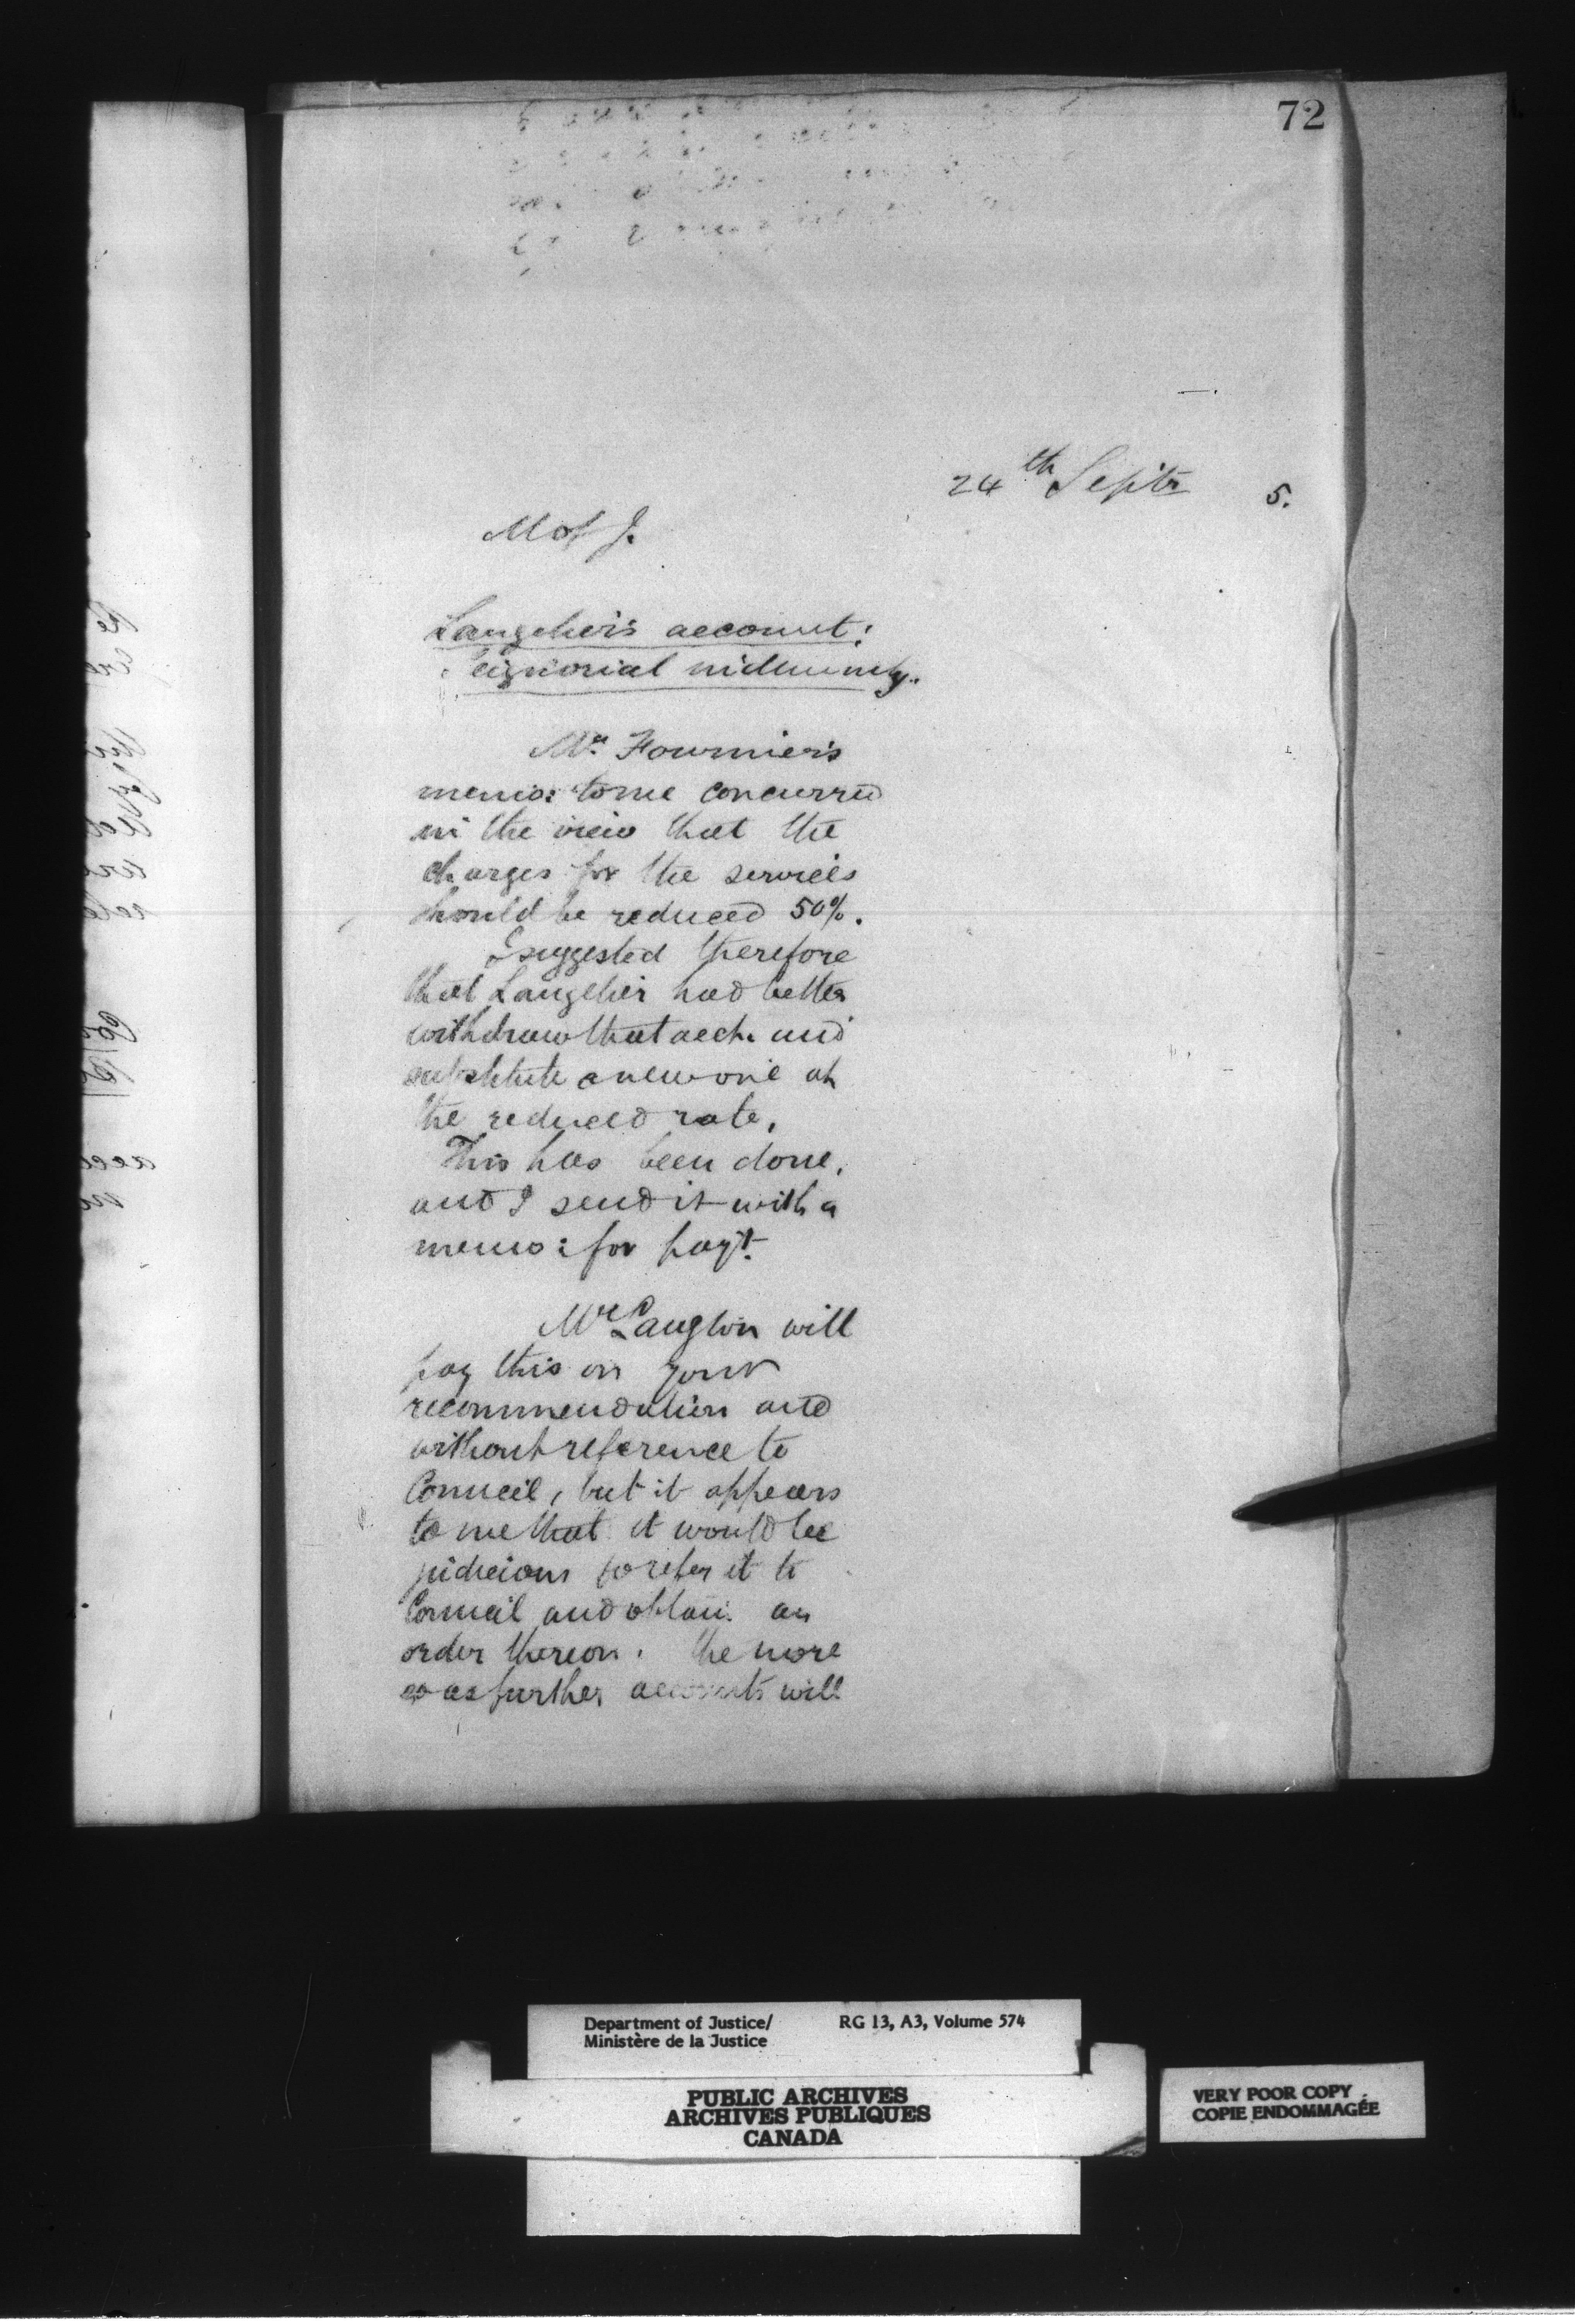 72
24th Septr 5.
M of J.
Langelier's account:
Seignorial indemnity.
Mr. Fournier's
memo: to me concurred
in the view that the
charges for the services
should be reduced 50%.
I suggested therefore
that Langelier had better
withdraw that acct. and
substitute a new one at
the reduced rate.
This has been done,
and I send it with a
memo: for payt.
Mr Langton will
pay this on your
recommendation and
without reference to
Council, but it appears
to me that it would be
judicious to refer it to
Council and obtain an
order thereon. the more
so as further accounts will
Department of Justice/ RG 13, A3, Volume 574
Ministère de la Justice
PUBLIC ARCHIVES
ARCHIVES PUBLIQUES
CANADA
VERY POOR COPY
COPIE ENDOMMAGÉE